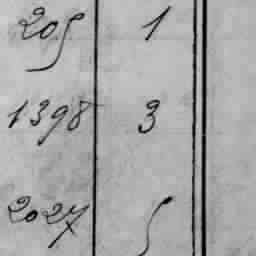 205 1
1398 3
2027 5